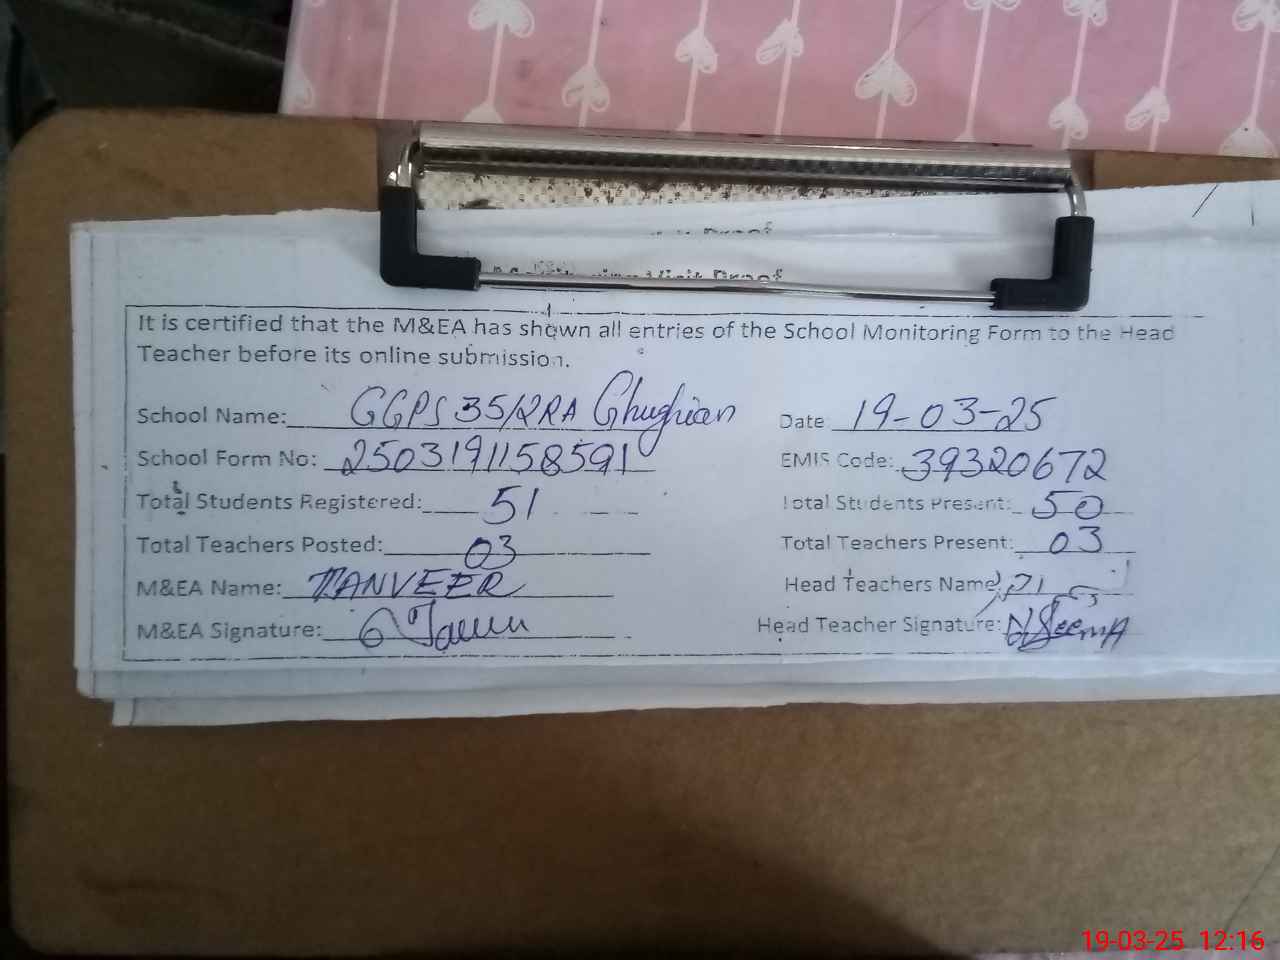 Monitoring Visit Proof
It is certified that the M&EA has shown all entries of the School Monitoring Form to the Head
Teacher before its online submission.
School Name: GGPS 35/2RA Ghughian Date: 19-03-25
School Form No: 2503191158591 EMIS Code: 39320672
Total Students Registered: 51 Total Students Present: 50
Total Teachers Posted: 03 Total Teachers Present: 03
M&EA Name: TANVEER Head Teachers Name:
M&EA Signature: Head Teacher Signature: Seema
19-03-25 12:16